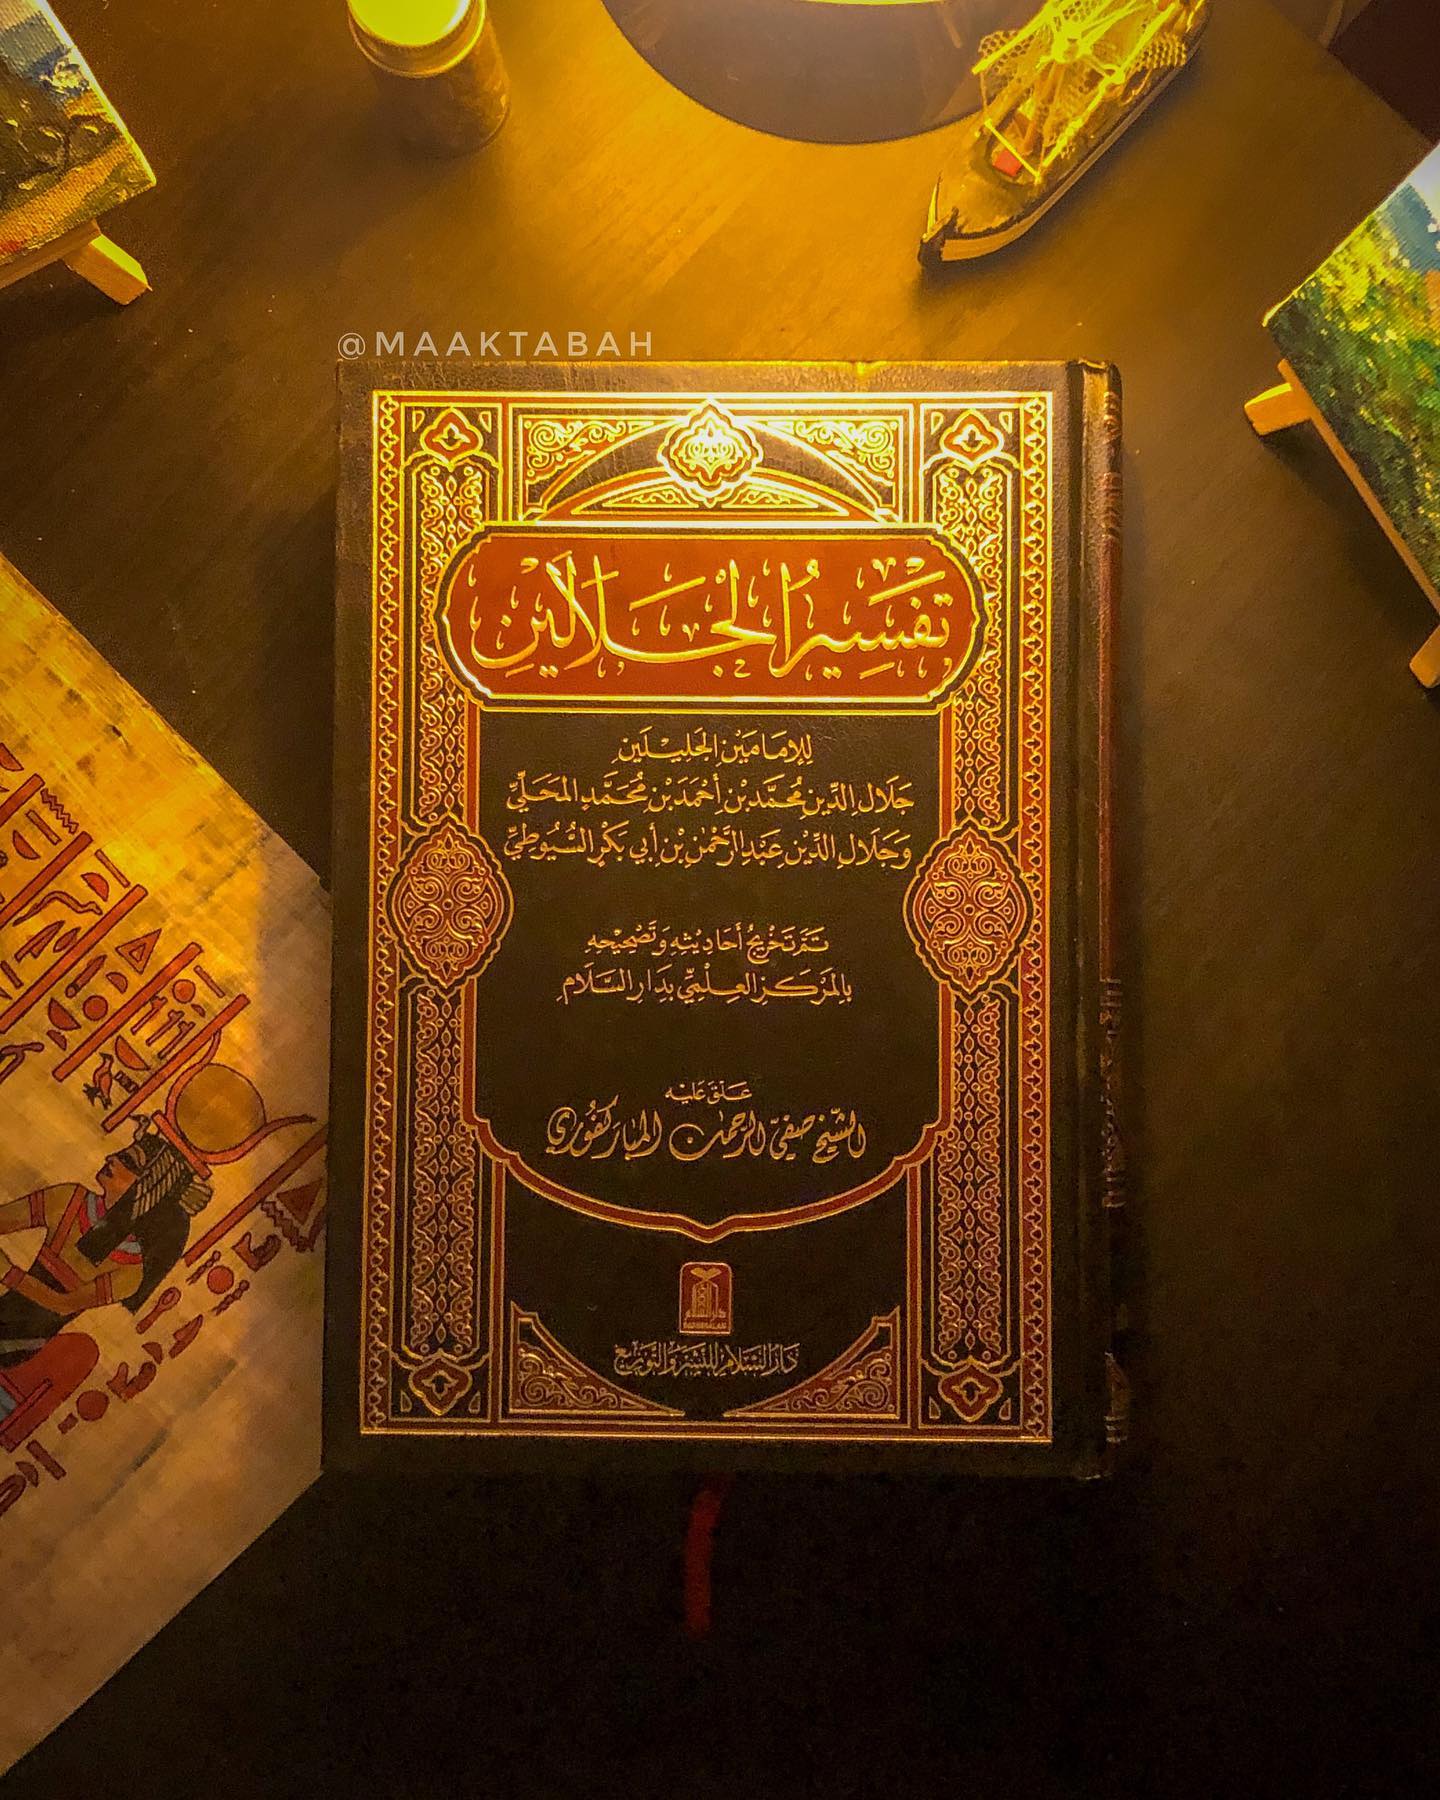 @MAAKTABAH
تَفْسِيرُ الْجَلَالَيْنِ
لِلإِمَامَيْنِ الجَلِيْلَيْنِ
جَلَالِ الدِّينِ مُحَمَّد بْنِ أَحْمَدَ بْنِ مُحَمَّدٍ المَحَلِّيِّ
وَجَلَالِ الدِّيْنِ عَبْدِ الرَّحْمٰنِ بْنِ أَبِي بَكْرٍ السُّيُوطِيِّ
تَمَّ تَخْرِيْجُ أَحَادِيْثِهِ وَتَصْحِيْحِهِ
بِالْمَرْكَزِ العِلْمِيِّ بِدَارِ السَّلَامِ
عَلَّقَ عَلَيْهِ
الشيخ صفيّ الرحمٰن المباركفُوري
دار السلام
DARUSSALAM
دَارُ السَّلَامِ لِلنَّشْرِ وَالتَّوْزِيْعِ